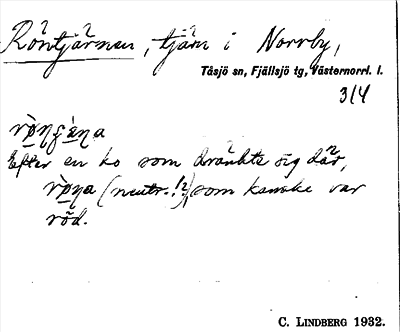 Röntjärnen, tjärn i Norrby,
Tåsjö sn, Fjällsjö tg, Västernorrl. l.
3/4
Efter en ko som dränkte sig där,
(neutr.!?) som kanske var
röd.
C. LINDBERG 1932.